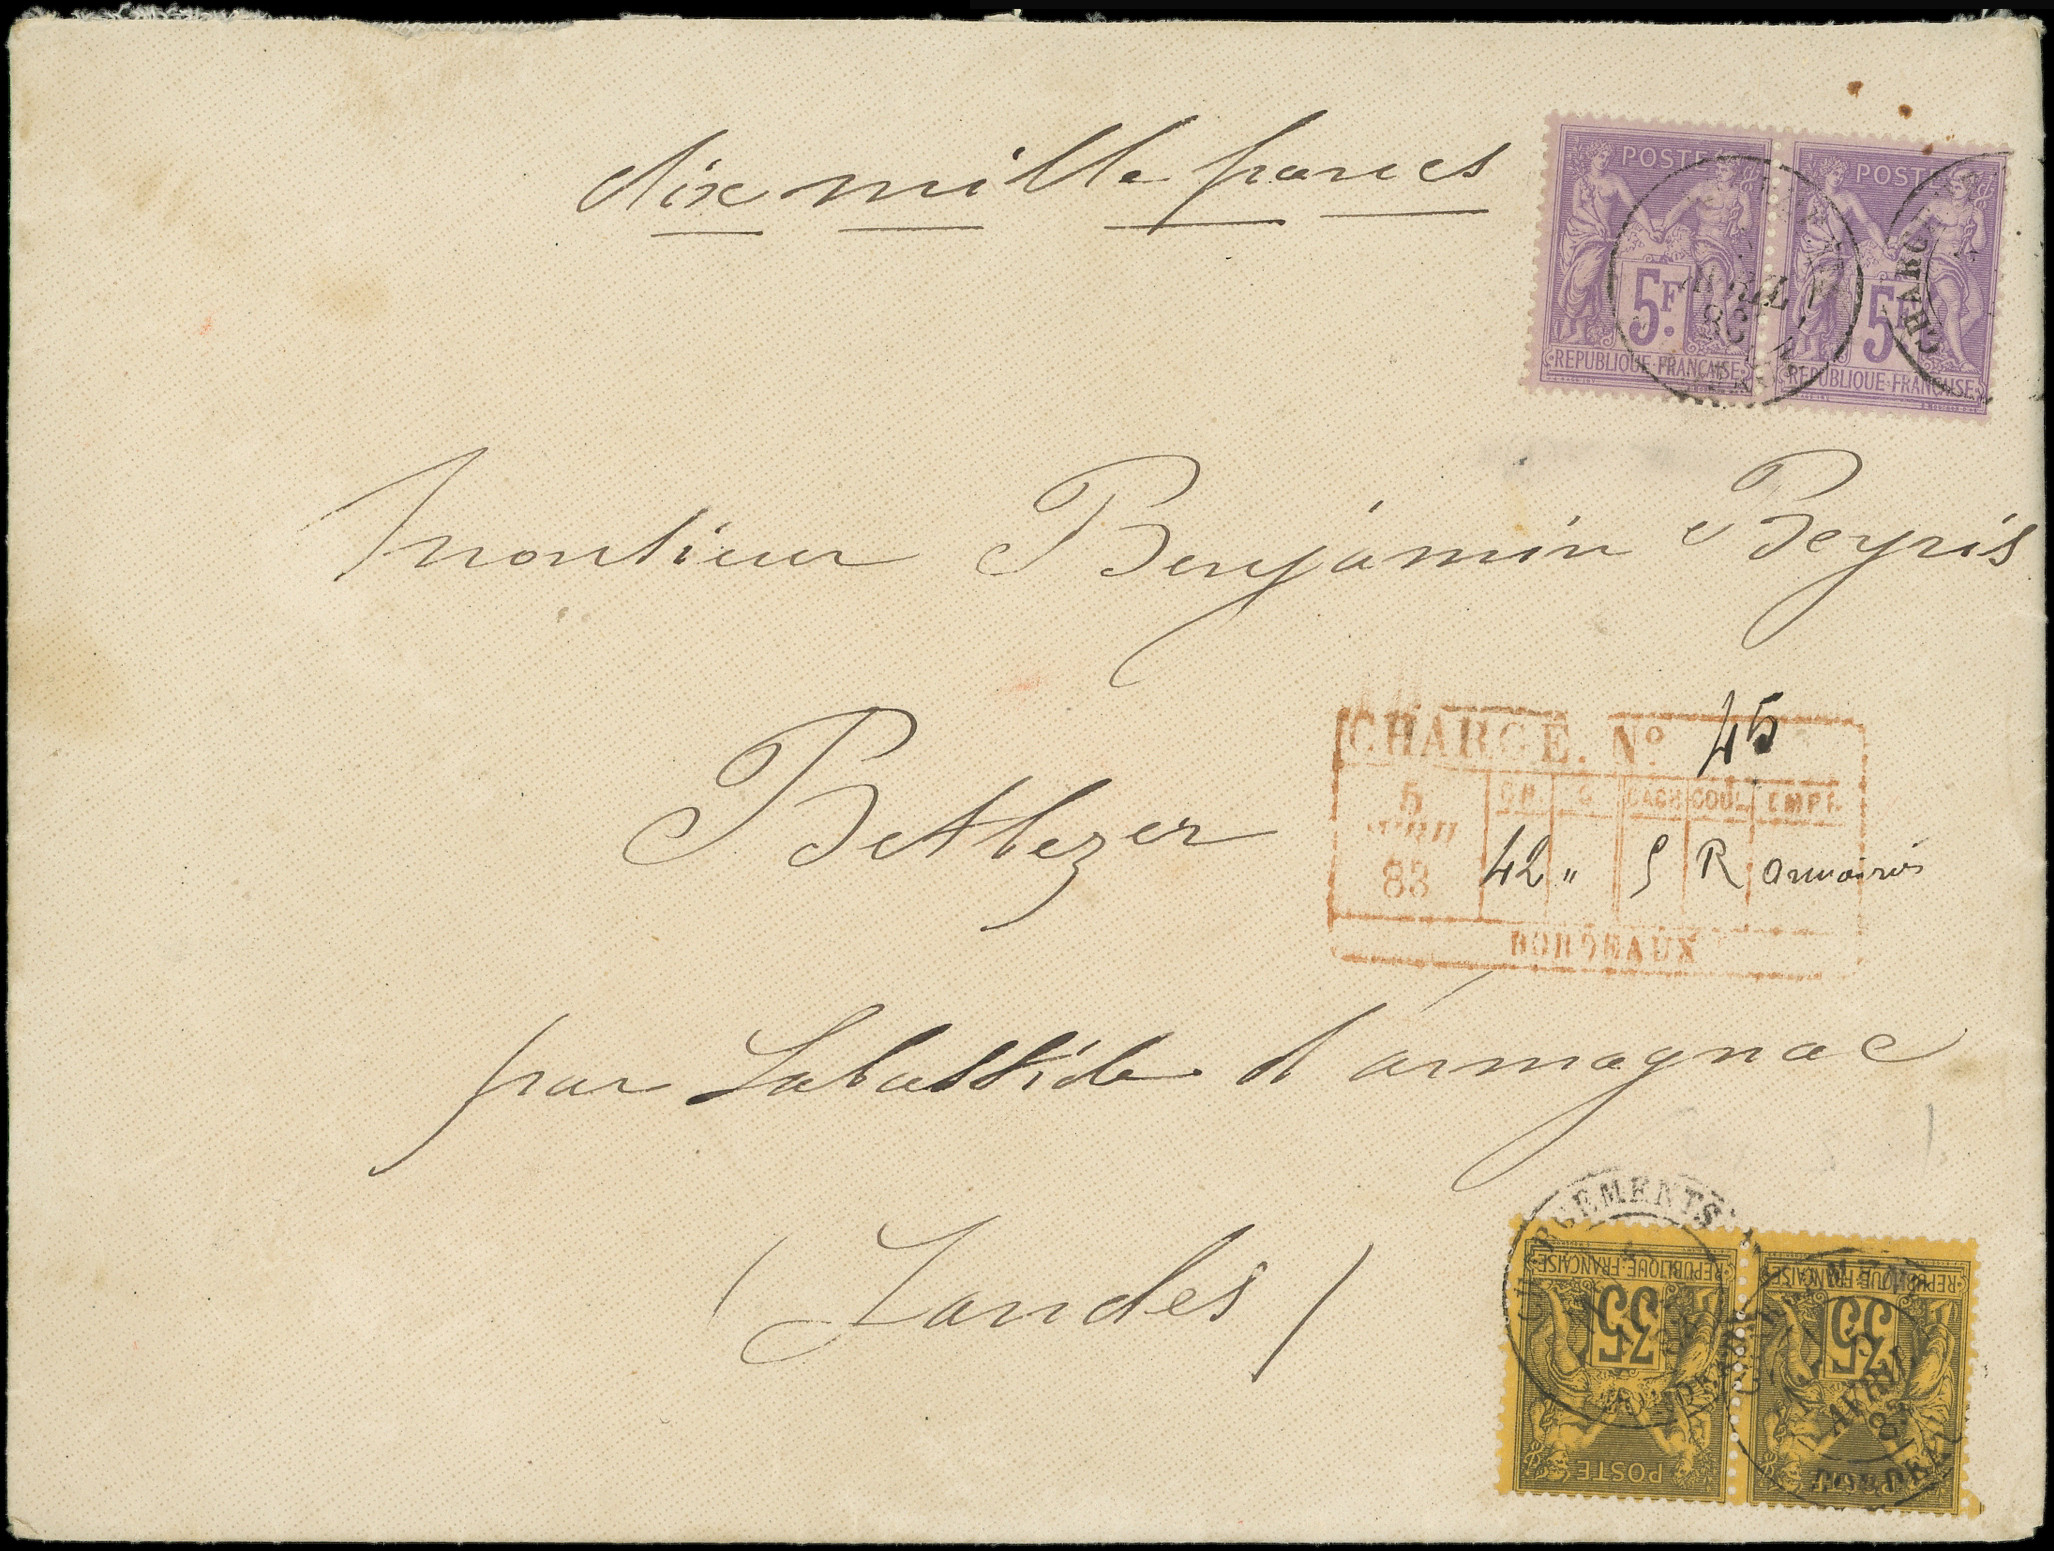 dix mille francs
POSTE POSTE
5F. 5F
REPUBLIQUE FRANÇAISE REPUBLIQUE FRANÇAISE
AVRIL
Monsieur Benjamin Beyris
CHARGÉ. Nº 45
5 GR. C CACH COUL EMPR.
AVRIL
83 42 " 5 R armoiries
BORDEAUX
Betbezer
par Labastide d'armagnac
(Landes)
CHARGEMENTS
REPUBLIQUE FRANÇAISE REPUBLIQUE FRANÇAISE
35 35
AVRIL
83
BORDEAUX
POSTE